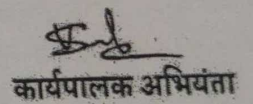 कार्यपालक अभियंता